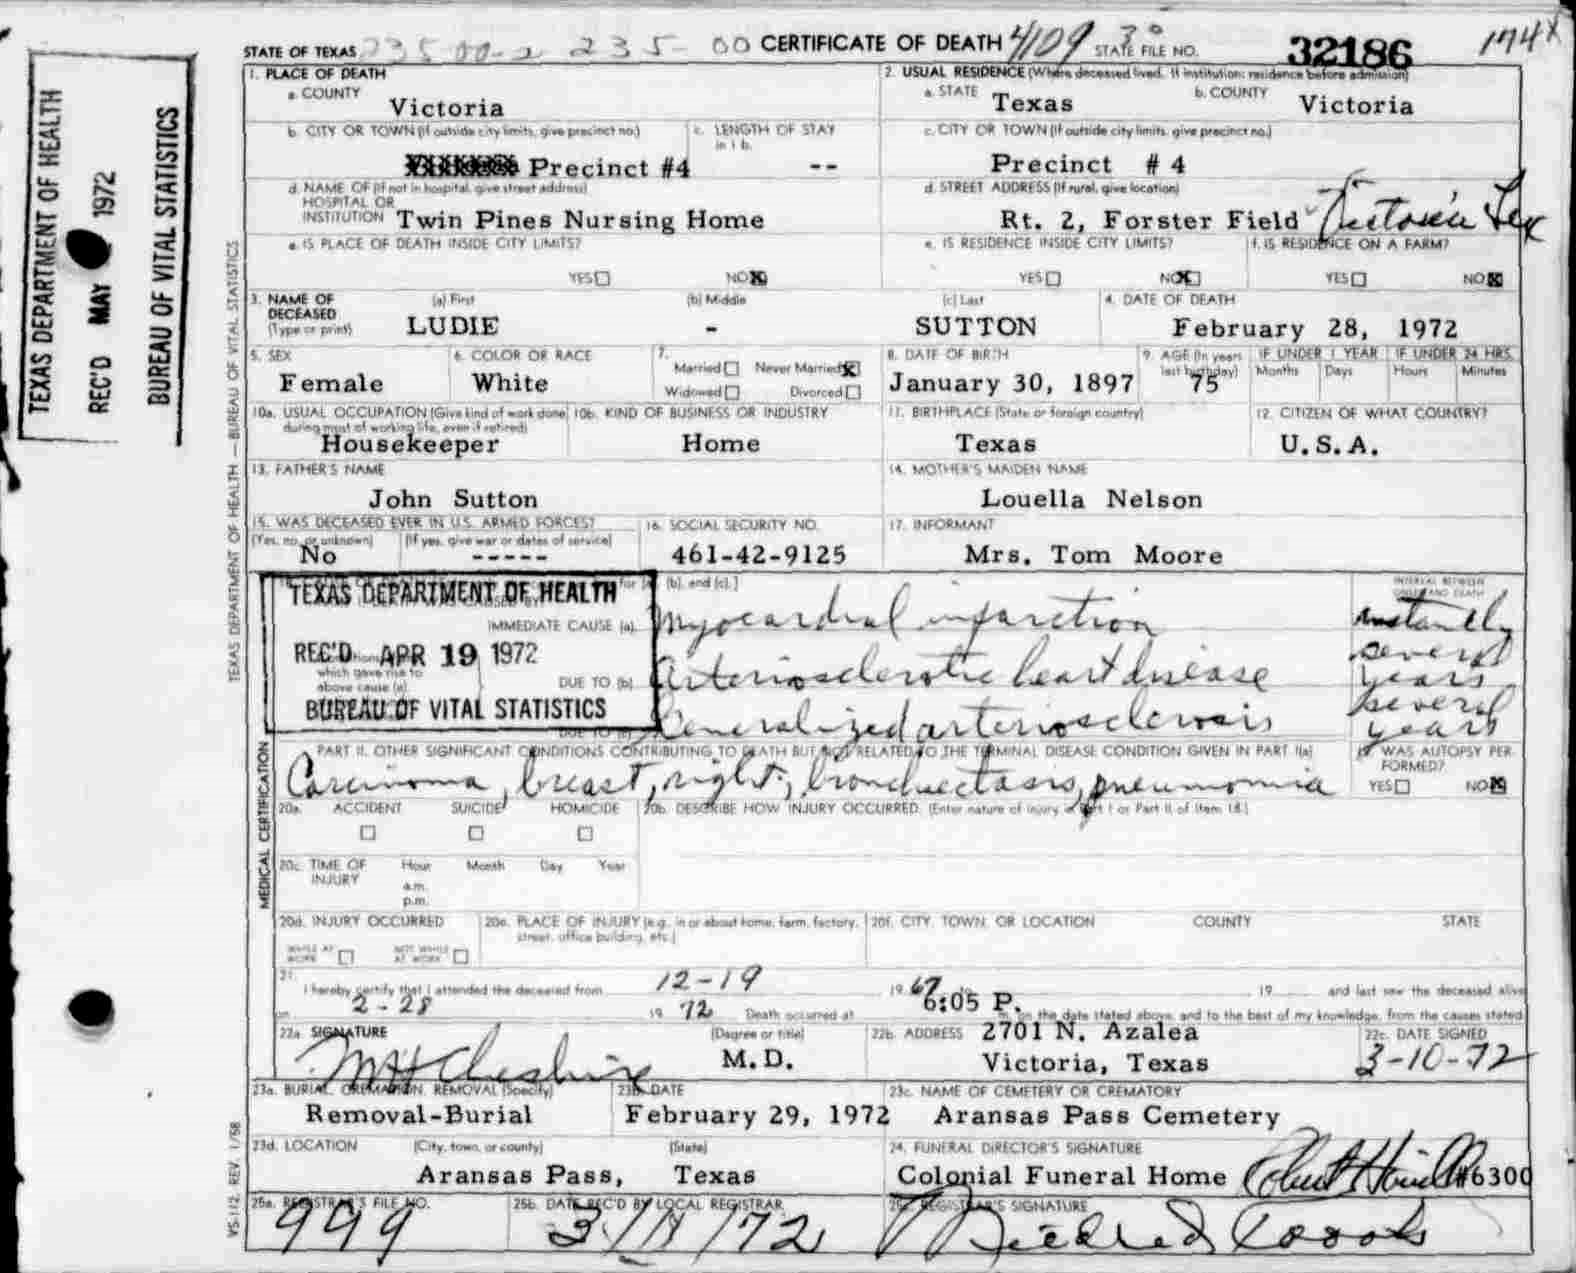 STATE OF TEXAS 23500-2 235-00 CERTIFICATE OF DEATH 4109 3° STATE FILE NO. 32186 174x
TEXAS DEPARTMENT OF HEALTH
REC'D MAY 1972
BUREAU OF VITAL STATISTICS
TEXAS DEPARTMENT OF HEALTH — BUREAU OF VITAL STATISTICS
1. PLACE OF DEATH
a. COUNTY
Victoria
2. USUAL RESIDENCE (Where deceased lived. If institution: residence before admission)
a. STATE Texas b. COUNTY Victoria
b. CITY OR TOWN (If outside city limits, give precinct no.)
Precinct #4
c. LENGTH OF STAY
in 1 b.
--
c. CITY OR TOWN (If outside city limits, give precinct no.)
Precinct # 4
d. NAME OF (If not in hospital, give street address)
HOSPITAL OR
INSTITUTION Twin Pines Nursing Home
d. STREET ADDRESS (If rural, give location)
Rt. 2, Forster Field Victoria Tex
e. IS PLACE OF DEATH INSIDE CITY LIMITS?
YES NO X
e. IS RESIDENCE INSIDE CITY LIMITS?
YES NO X
f. IS RESIDENCE ON A FARM?
YES NO X
3. NAME OF
DECEASED
(Type or print)
(a) First
LUDIE
(b) Middle
-
(c) Last
SUTTON
4. DATE OF DEATH
February 28, 1972
5. SEX
Female
6. COLOR OR RACE
White
7.
Married Never Married X
Widowed Divorced
8. DATE OF BIRTH
January 30, 1897
9. AGE (In years
last birthday)
75
IF UNDER 1 YEAR IF UNDER 24 HRS.
Months Days Hours Minutes
10a. USUAL OCCUPATION (Give kind of work done
during most of working life, even if retired)
Housekeeper
10b. KIND OF BUSINESS OR INDUSTRY
Home
11. BIRTHPLACE (State or foreign country)
Texas
12. CITIZEN OF WHAT COUNTRY?
U.S.A.
13. FATHER'S NAME
John Sutton
14. MOTHER'S MAIDEN NAME
Louella Nelson
15. WAS DECEASED EVER IN U.S. ARMED FORCES?
(Yes, no, or unknown) (If yes, give war or dates of service)
No -----
16. SOCIAL SECURITY NO.
461-42-9125
17. INFORMANT
Mrs. Tom Moore
for (a), (b), and (c).]
INTERVAL BETWEEN
ONSET AND DEATH
TEXAS DEPARTMENT OF HEALTH
REC'D APR 19 1972
BUREAU OF VITAL STATISTICS
IMMEDIATE CAUSE (a) Myocardial infarction instantly
which gave rise to
above cause (a)
DUE TO (b) Arteriosclerotic heart disease several years
DUE TO (c) Generalized arteriosclerosis several years
MEDICAL CERTIFICATION
PART II. OTHER SIGNIFICANT CONDITIONS CONTRIBUTING TO DEATH BUT NOT RELATED TO THE TERMINAL DISEASE CONDITION GIVEN IN PART I(a)
Carcinoma, breast, right; bronchiectasis, pneumonia
19. WAS AUTOPSY PER-
FORMED?
YES NO X
20a. ACCIDENT SUICIDE HOMICIDE
20b. DESCRIBE HOW INJURY OCCURRED. (Enter nature of injury in Part I or Part II of Item 18.)
20c. TIME OF
INJURY
Hour Month Day Year
a.m.
p.m.
20d. INJURY OCCURRED
WHILE AT
WORK
NOT WHILE
AT WORK
20e. PLACE OF INJURY (e.g., in or about home, farm, factory,
street, office building, etc.)
20f. CITY, TOWN, OR LOCATION COUNTY STATE
21.
I hereby certify that I attended the deceased from 12-19 1967 to 19 and last saw the deceased alive
on 2-28 1972 Death occurred at 6:05 P. m. on the date stated above, and to the best of my knowledge, from the causes stated.
22a. SIGNATURE
MH Cheshire
(Degree or title)
M.D.
22b. ADDRESS 2701 N. Azalea
Victoria, Texas
22c. DATE SIGNED
3-10-72
23a. BURIAL, CREMATION, REMOVAL (Specify)
Removal-Burial
23b. DATE
February 29, 1972
23c. NAME OF CEMETERY OR CREMATORY
Aransas Pass Cemetery
23d. LOCATION (City, town, or county) (State)
Aransas Pass, Texas
24. FUNERAL DIRECTOR'S SIGNATURE
Colonial Funeral Home #6300
VS-112 REV. 1/58
25a. REGISTRAR'S FILE NO.
999
25b. DATE REC'D BY LOCAL REGISTRAR
72
25c. REGISTRAR'S SIGNATURE
Mildred